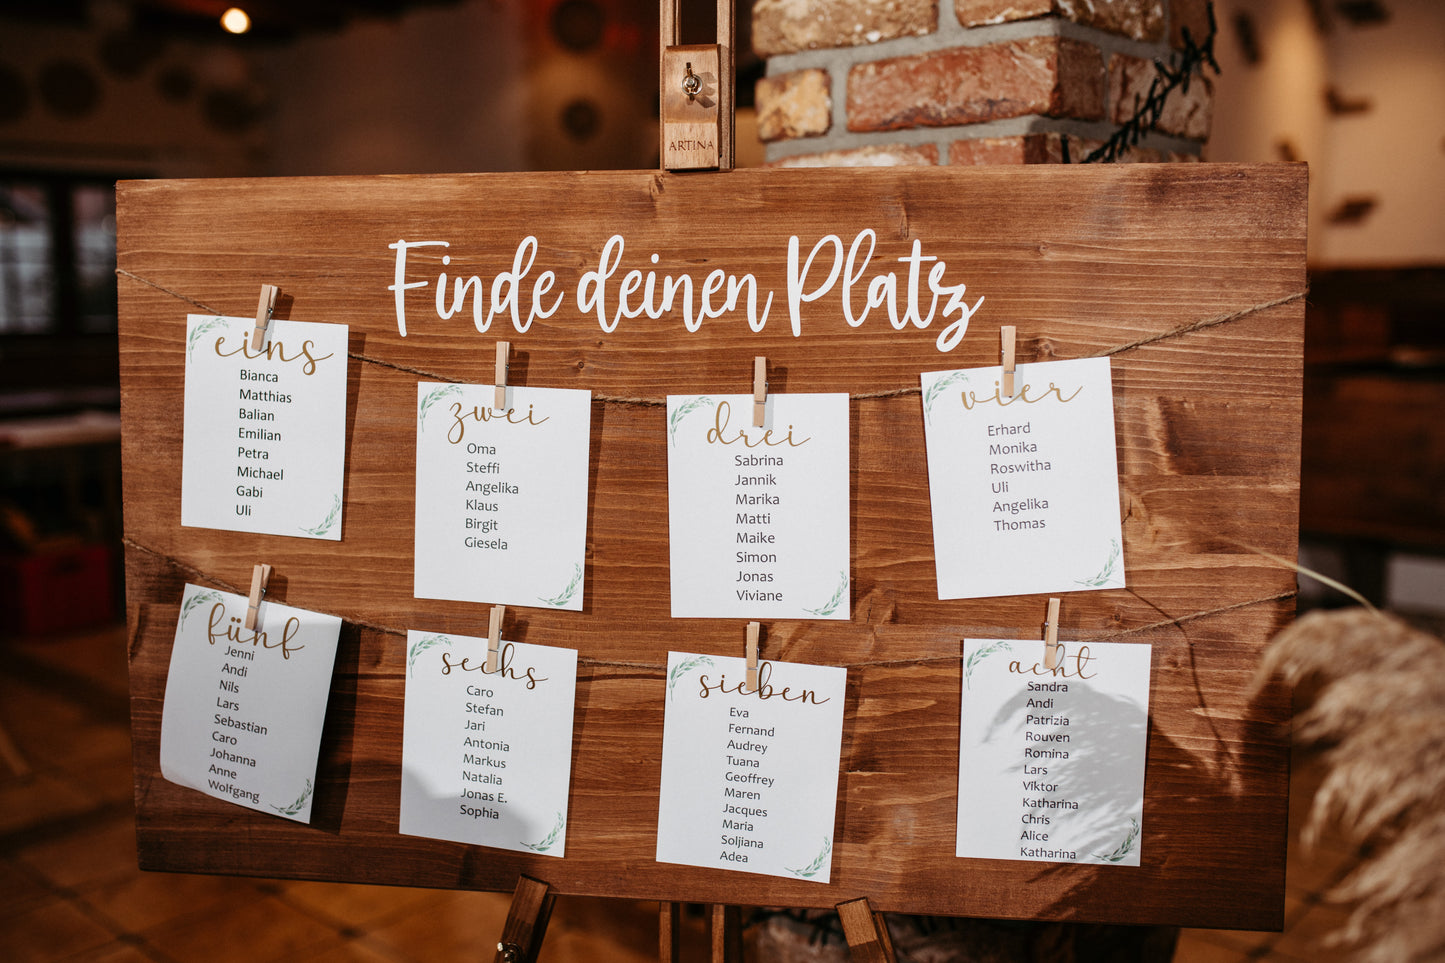 ARTINA
Finde deinen Platz
eins
Bianca
Matthias
Balian
Emilian
Petra
Michael
Gabi
Uli
zwei
Oma
Steffi
Angelika
Klaus
Birgit
Giesela
drei
Sabrina
Jannik
Marika
Matti
Maike
Simon
Jonas
Viviane
vier
Erhard
Monika
Roswitha
Uli
Angelika
Thomas
fünf
Jenni
Andi
Nils
Lars
Sebastian
Caro
Johanna
Anne
Wolfgang
sechs
Caro
Stefan
Jari
Antonia
Markus
Natalia
Jonas E.
Sophia
sieben
Eva
Fernand
Audrey
Tuana
Geoffrey
Maren
Jacques
Maria
Soljiana
Adea
acht
Sandra
Andi
Patrizia
Rouven
Romina
Lars
Viktor
Katharina
Chris
Alice
Katharina